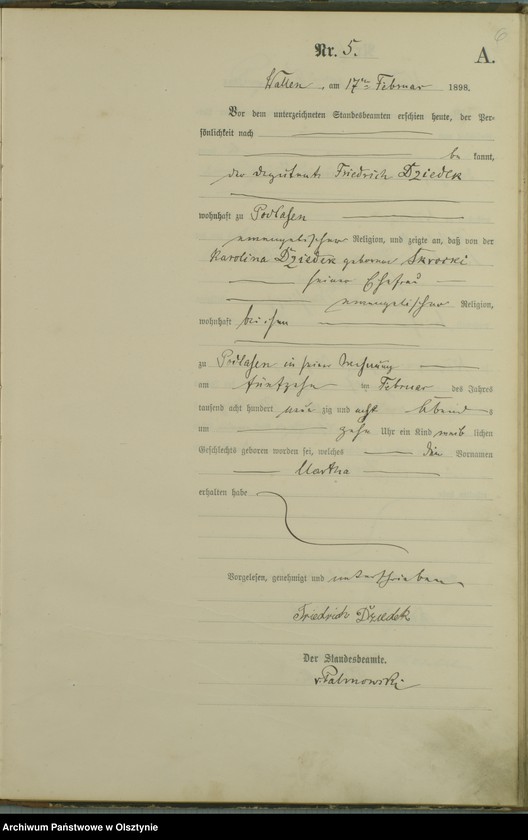 6
Nr. 5.
A.
Wallen, am 17ten Februar 1898.
Vor dem unterzeichneten Standesbeamten erschien heute, der Per-
sönlichkeit nach
be kannt,
der Deputant Friedrich Dziedek
wohnhaft zu Podlasen
evangelischer Religion, und zeigte an, daß von der
Karolina Dziedek geborene
seiner Ehefrau
evangelischer Religion,
wohnhaft bei ihm
zu Podlasen in seiner Wohnung
am fünfzehn im Februar des Jahres
tausend acht hundert neun zig und acht Abend s
um zehn Uhr ein Kind weib lichen
Geschlechts geboren worden sei, welches den Vornamen
Martha
erhalten habe
Vorgelesen, genehmigt und unterschrieben
Friedrich Dziedek
Der Standesbeamte.
Archiwum Państwowe w Olsztynie